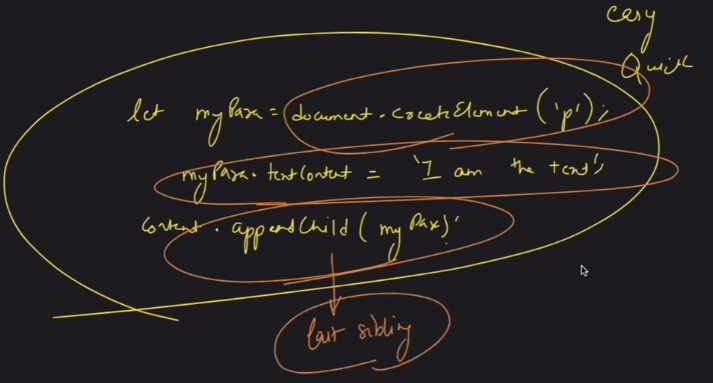 easy
Quick
let myPara = document.createElement('p');
myPara.textContent = 'I am the text';
content.appendChild(myPara);
last sibling